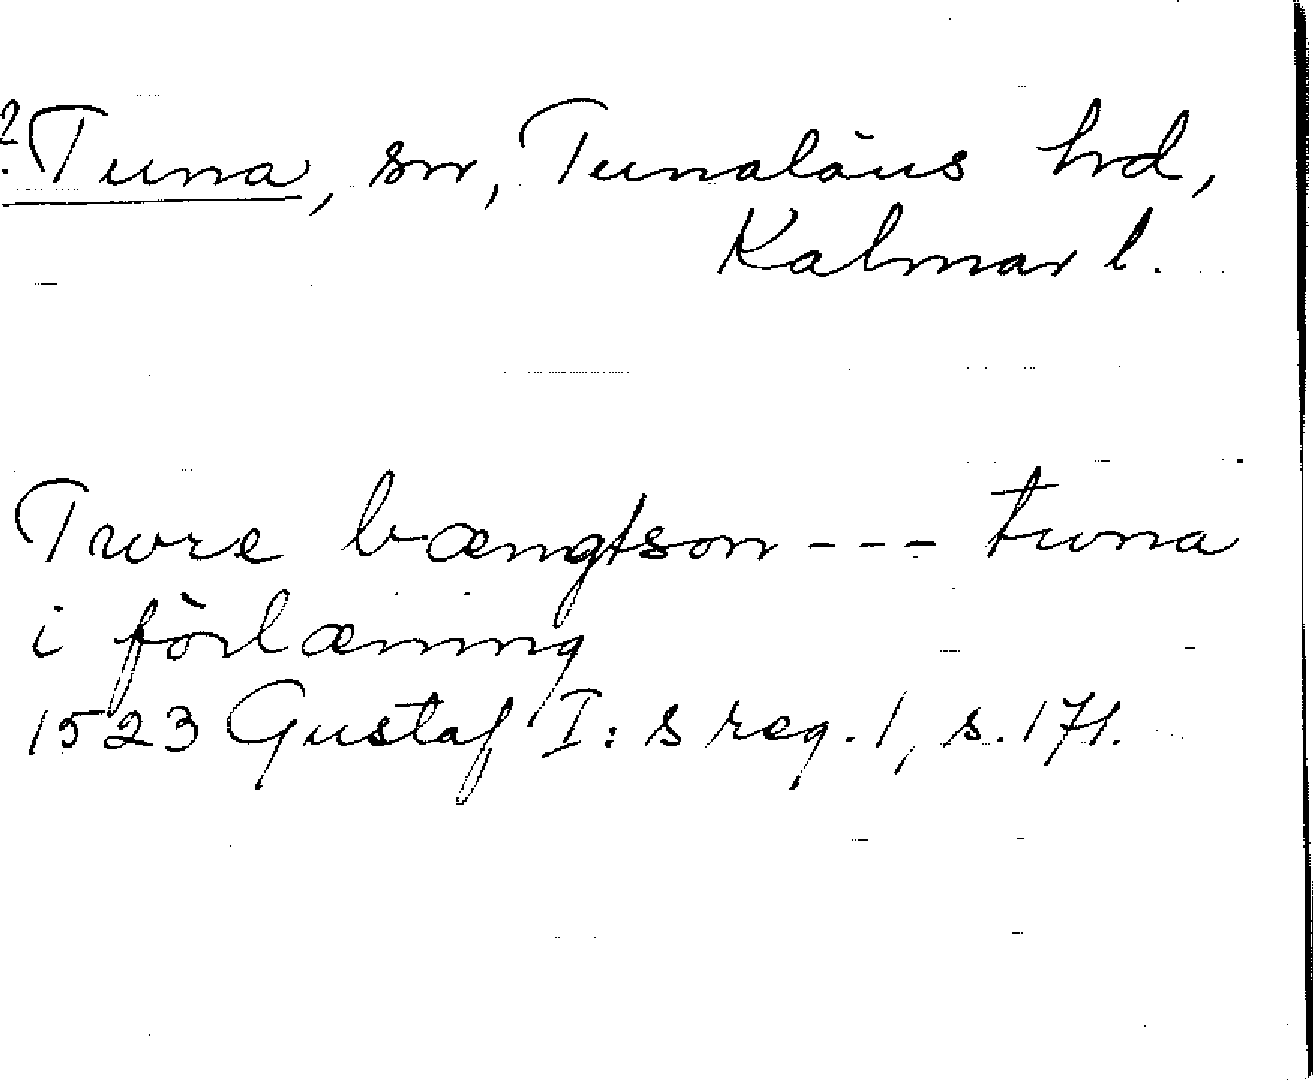 ? Tuna, sn, Tunaläns hd,
Kalmar l.
Twre bængtson --- twna
i förlæning
1523 Gustaf I:s reg. 1, s. 171.